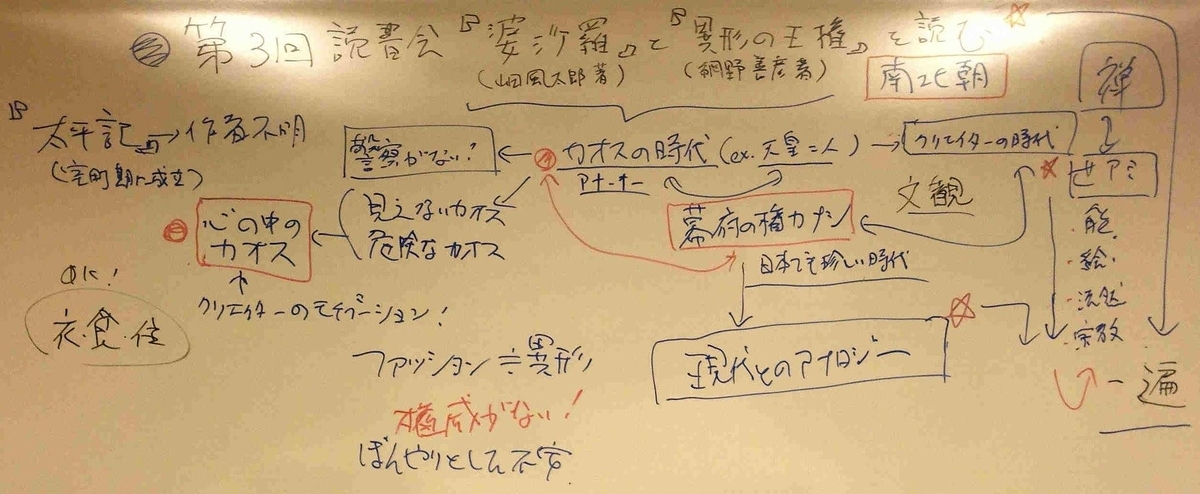 第3回 読書会 『婆沙羅』と『異形の王権』を読む
(山田風太郎著) (網野善彦著)
南北朝
禅
『太平記』→作者不明
(室町期に成立)
警察がない!
カオスの時代 (ex. 天皇=二人)
アナーキー
クリエイターの時代
世アミ
文観
見えないカオス
危険なカオス
心の中の
カオス
幕府の権力ナシ
日本でも珍しい時代
・能
・絵
・流

・宗教
クリエイターのモチベーション!
のに!
衣・食・住
ファッション≒異形
現代とのアナロジー
一遍
権威がない!
ぼんやりとした不安